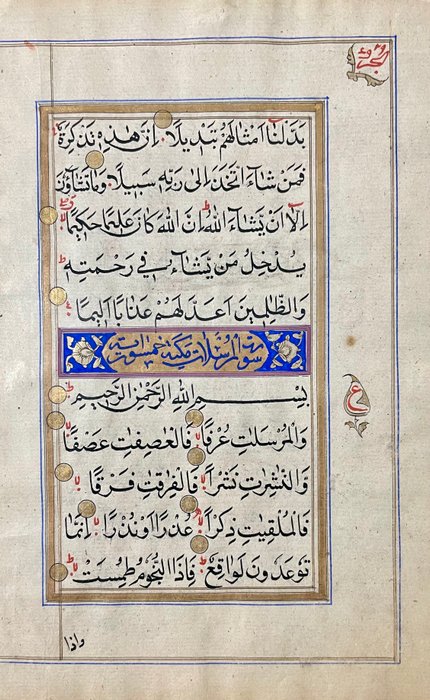 بَدَّلْنَا أَمْثَالَهُمْ تَبْدِيلًا إِنَّ هٰذِهِ تَذْكِرَةٌ
فَمَنْ شَاءَ اتَّخَذَ إِلَىٰ رَبِّهِ سَبِيلًا وَمَا تَشَاؤُنَ
إِلَّا أَنْ يَشَاءَ اللَّهُ إِنَّ اللَّهَ كَانَ عَلِيمًا حَكِيمًا
يُدْخِلُ مَنْ يَشَاءُ فِي رَحْمَتِهِ
وَالظّٰلِمِينَ أَعَدَّ لَهُمْ عَذَابًا أَلِيمًا
سورة المرسلات مكية خمسون آية
بِسْمِ اللهِ الرَّحْمٰنِ الرَّحِيمِ
وَالْمُرْسَلٰتِ عُرْفًا فَالْعٰصِفٰتِ عَصْفًا
وَالنّٰشِرٰتِ نَشْرًا فَالْفٰرِقٰتِ فَرْقًا
فَالْمُلْقِيٰتِ ذِكْرًا عُذْرًا أَوْ نُذْرًا إِنَّمَا
تُوعَدُونَ لَوَاقِعٌ فَإِذَا النُّجُومُ طُمِسَتْ
ع
واذا